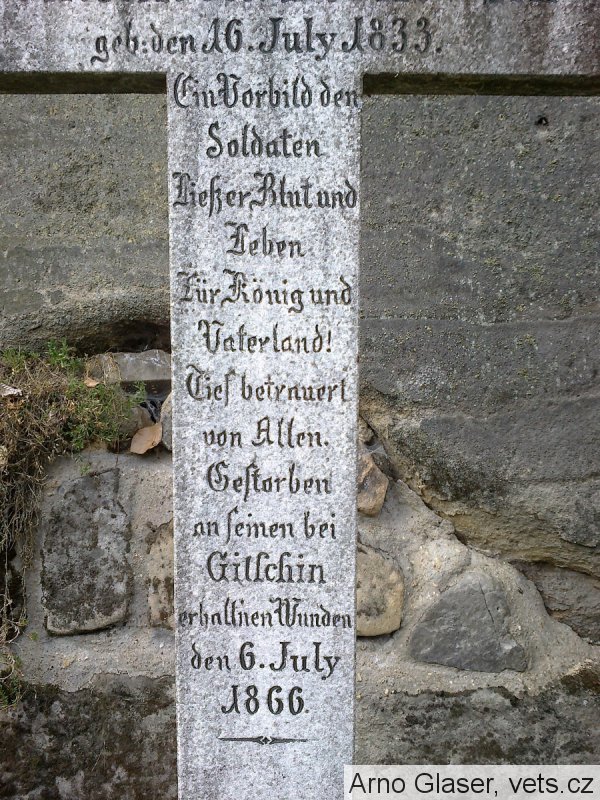 geb: den 16. July 1833.
Ein Vorbild den
Soldaten
Ließ er Blut und
Leben
Für König und
Vaterland!
Tief betrauert
von Allen.
Gestorben
an seinen bei
Gitschin
erhaltnen Wunden
den 6. July
1866.
Arno Glaser, vets.cz